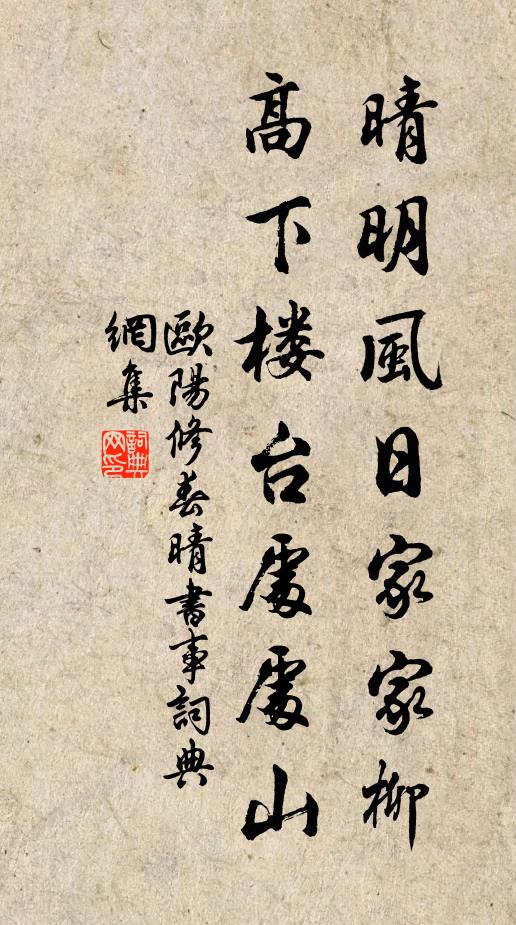 晴明風日家家柳
高下楼台處處山
歐陽修春晴書事詞典
網集
詞典網印